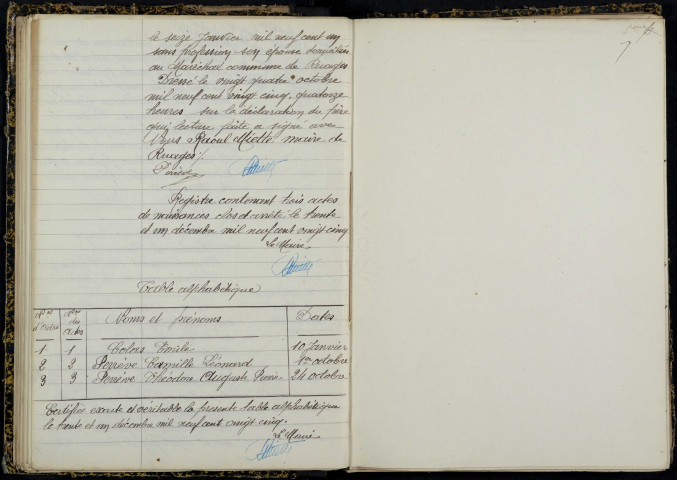 le seize janvier mil neuf cent un
sans profession son épouse domiciliés
au Maréchal commune de Ruages
Dressé le vingt quatre octobre
mil neuf cent vingt cinq, quatorze
heures sur la déclaration du père
qui, lecture faite a signé avec
Nous Raoul Miette maire de
Ruages
Miette
Registre contenant trois actes
de naissances clos et arrêté le trente
et un décembre mil neuf cent vingt cinq
Le Maire
Miette
Table alphabétique
Nos d'ordre Nos des actes Noms et prénoms Dates
1 1 Colas Emile 10 Janvier
2 2 Perrève Camille Léonard 1er octobre
3 3 Perrève Théodore Auguste Pierre 24 octobre
Certifiée exacte et véritable la présente table alphabétique
le trente et un décembre mil neuf cent vingt cinq.
Le Maire
Miette